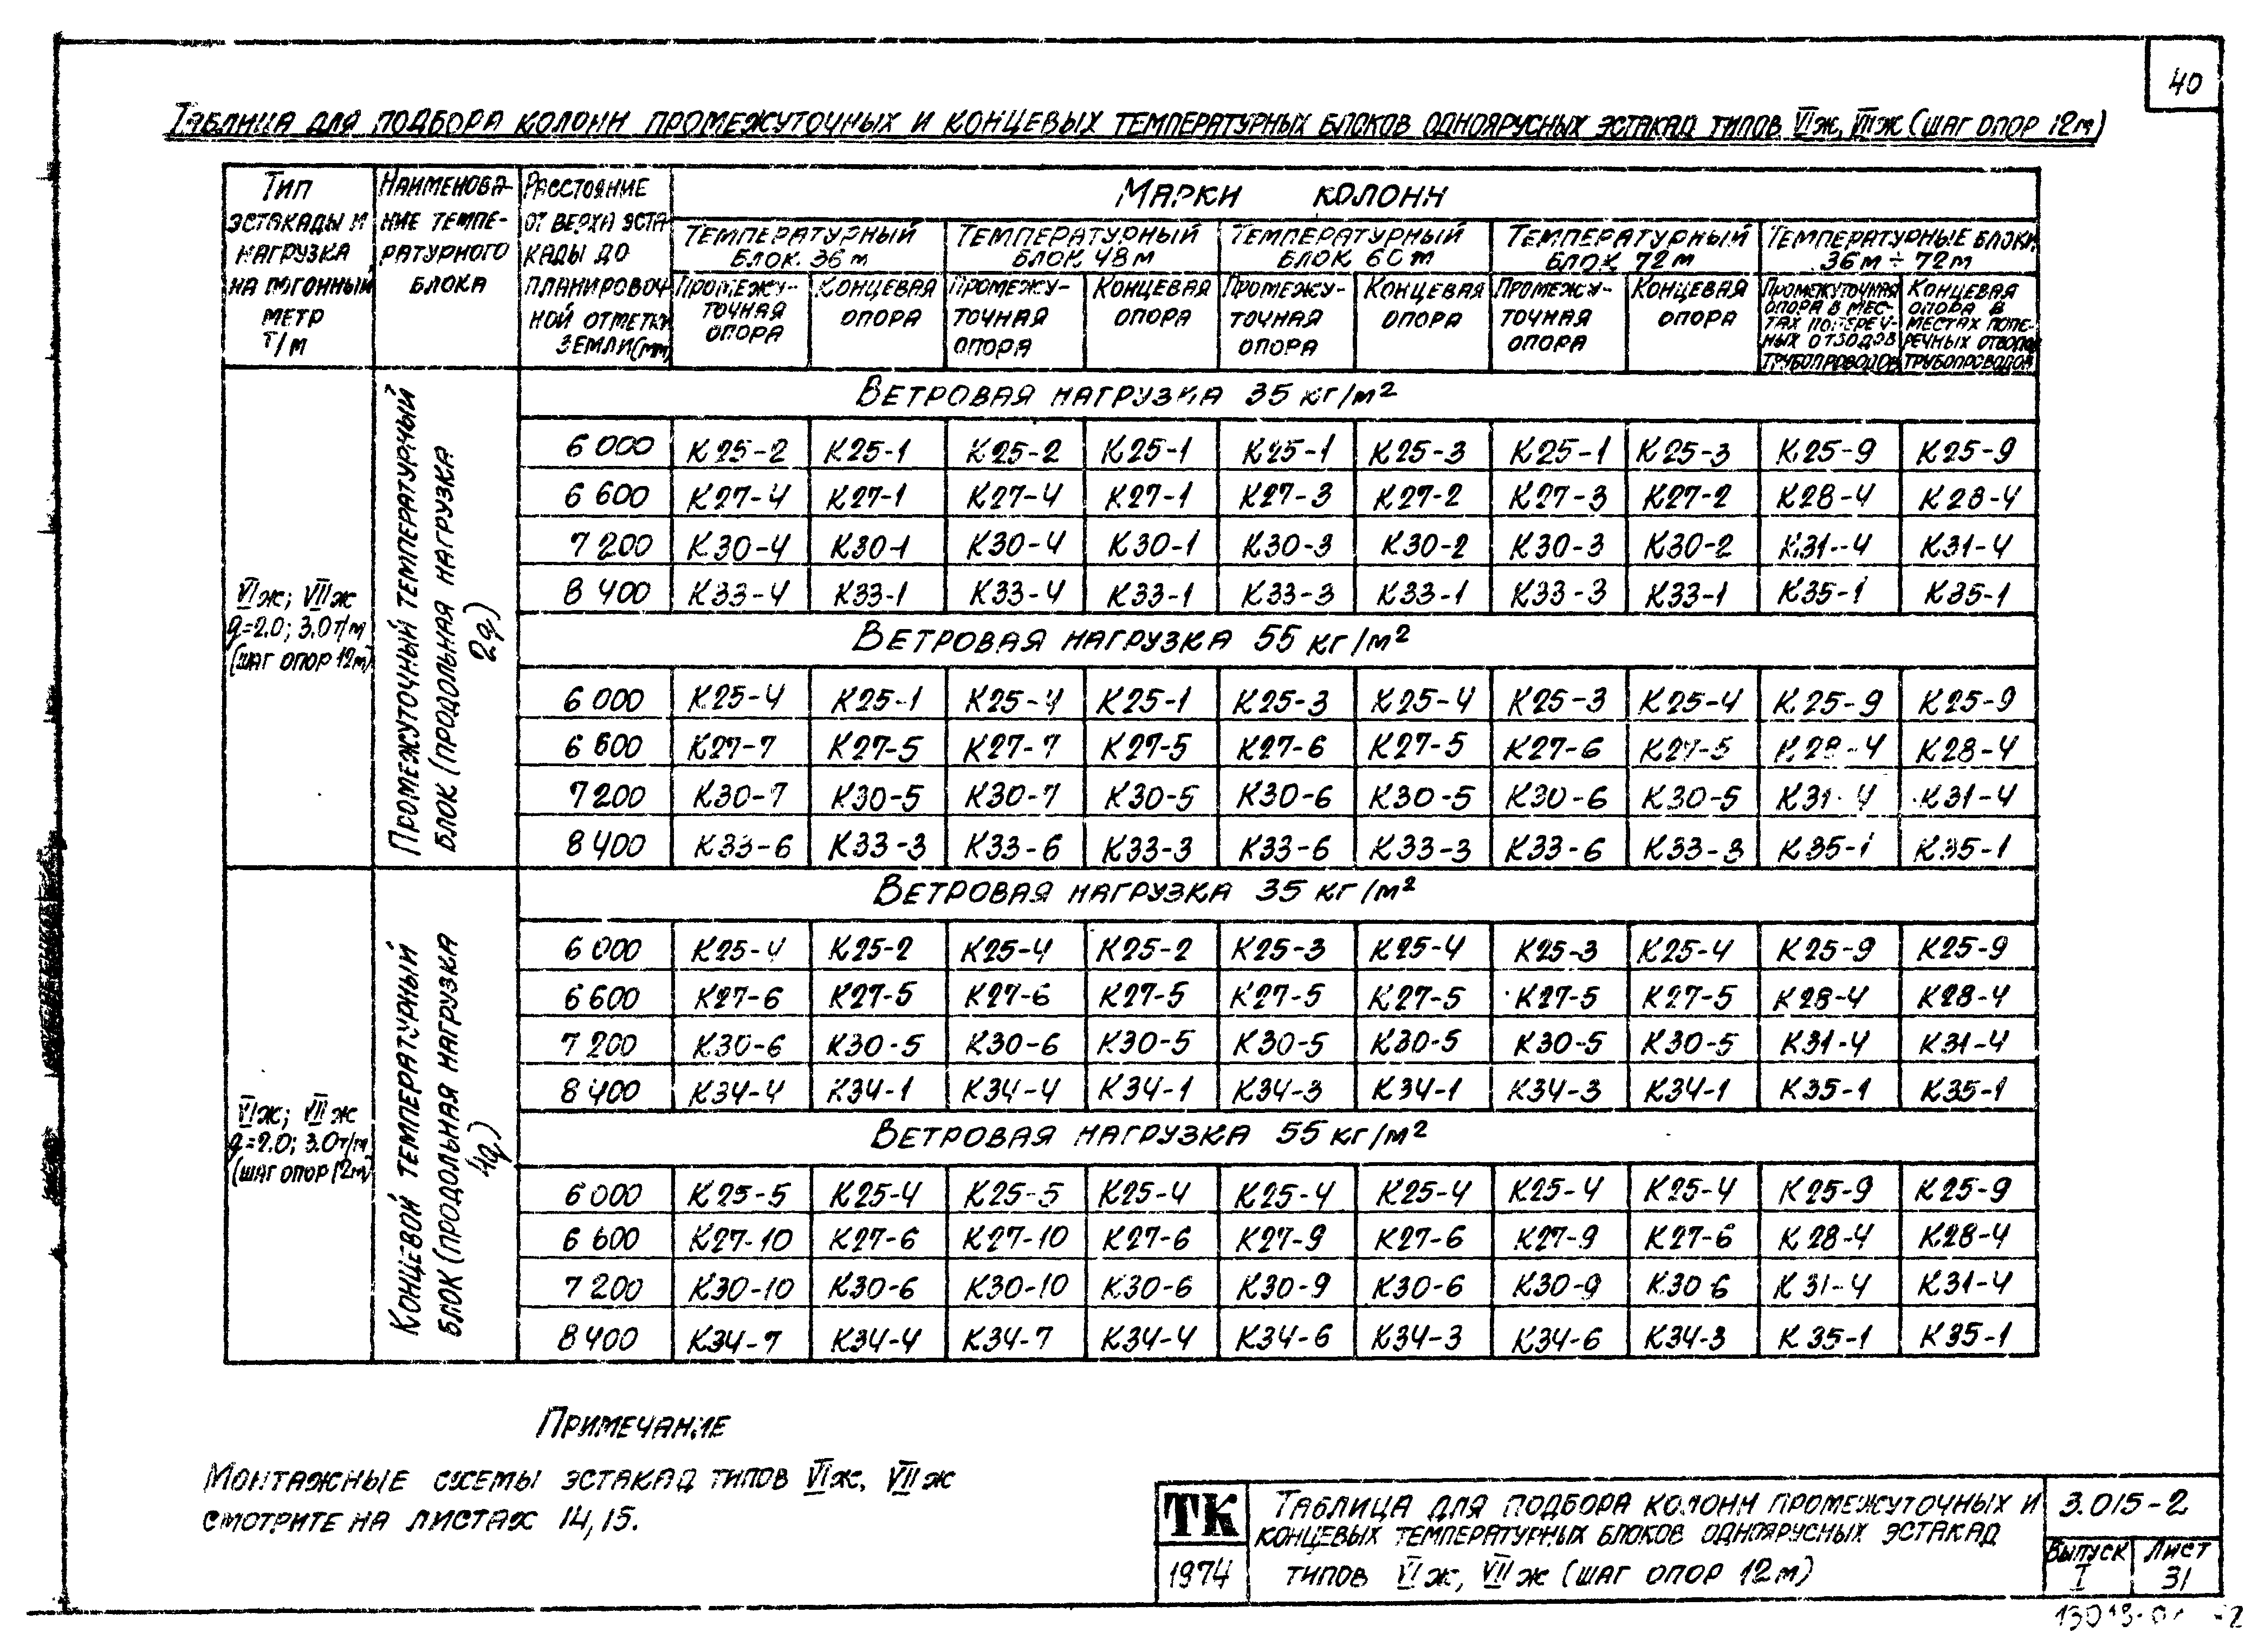 40
Таблица для подбора колонн промежуточных и концевых температурных блоков одноярусных эстакад типов VIж, VIIж (шаг опор 12м)
Тип эстакады и нагрузка на погонный метр т/м
Наименование температурного блока
Расстояние от верха эстакады до планировочной отметки земли (мм)
Марки колонн
Температурный блок 36м
Температурный блок 48м
Температурный блок 60м
Температурный блок 72м
Температурные блоки 36м ÷ 72м
Промежуточная опора
Концевая опора
Промежуточная опора
Концевая опора
Промежуточная опора
Концевая опора
Промежуточная опора
Концевая опора
Промежуточная опора в местах поперечных отводов трубопроводов
Концевая опора в местах поперечных отводов трубопроводов
VIж; VIIж
q=2.0; 3.0т/м
(шаг опор 12м)
Промежуточный температурный
блок (продольная нагрузка
2q)
Ветровая нагрузка 35 кг/м²
6 000 К25-2 К25-1 К25-2 К25-1 К25-1 К25-3 К25-1 К25-3 К25-9 К25-9
6 600 К27-4 К27-1 К27-4 К27-1 К27-3 К27-2 К27-3 К27-2 К28-4 К28-4
7 200 К30-4 К30-1 К30-4 К30-1 К30-3 К30-2 К30-3 К30-2 К31-4 К31-4
8 400 К33-4 К33-1 К33-4 К33-1 К33-3 К33-1 К33-3 К33-1 К35-1 К35-1
Ветровая нагрузка 55 кг/м²
6 000 К25-4 К25-1 К25-4 К25-1 К25-3 К25-4 К25-3 К25-4 К25-9 К25-9
6 600 К27-7 К27-5 К27-7 К27-5 К27-6 К27-5 К27-6 К27-5 К28-4 К28-4
7 200 К30-7 К30-5 К30-7 К30-5 К30-6 К30-5 К30-6 К30-5 К31-4 К31-4
8 400 К33-6 К33-3 К33-6 К33-3 К33-6 К33-3 К33-6 К33-3 К35-1 К35-1
VIж; VIIж
q=2.0; 3.0т/м
(шаг опор 12м)
Концевой температурный
блок (продольная нагрузка
4q)
Ветровая нагрузка 35 кг/м²
6 000 К25-4 К25-2 К25-4 К25-2 К25-3 К25-4 К25-3 К25-4 К25-9 К25-9
6 600 К27-6 К27-5 К27-6 К27-5 К27-5 К27-5 К27-5 К27-5 К28-4 К28-4
7 200 К30-6 К30-5 К30-6 К30-5 К30-5 К30-5 К30-5 К30-5 К31-4 К31-4
8 400 К34-4 К34-1 К34-4 К34-1 К34-3 К34-1 К34-3 К34-1 К35-1 К35-1
Ветровая нагрузка 55 кг/м²
6 000 К25-5 К25-4 К25-5 К25-4 К25-4 К25-4 К25-4 К25-4 К25-9 К25-9
6 600 К27-10 К27-6 К27-10 К27-6 К27-9 К27-6 К27-9 К27-6 К28-4 К28-4
7 200 К30-10 К30-6 К30-10 К30-6 К30-9 К30-6 К30-9 К30 6 К31-4 К31-4
8 400 К34-7 К34-4 К34-7 К34-4 К34-6 К34-3 К34-6 К34-3 К35-1 К35-1
Примечание
Монтажные схемы эстакад типов VIж, VIIж
смотрите на листах 14, 15.
ТК
1974
Таблица для подбора колонн промежуточных и
концевых температурных блоков одноярусных эстакад
типов VIж, VIIж (шаг опор 12м)
3.015-2
Выпуск I
Лист 31